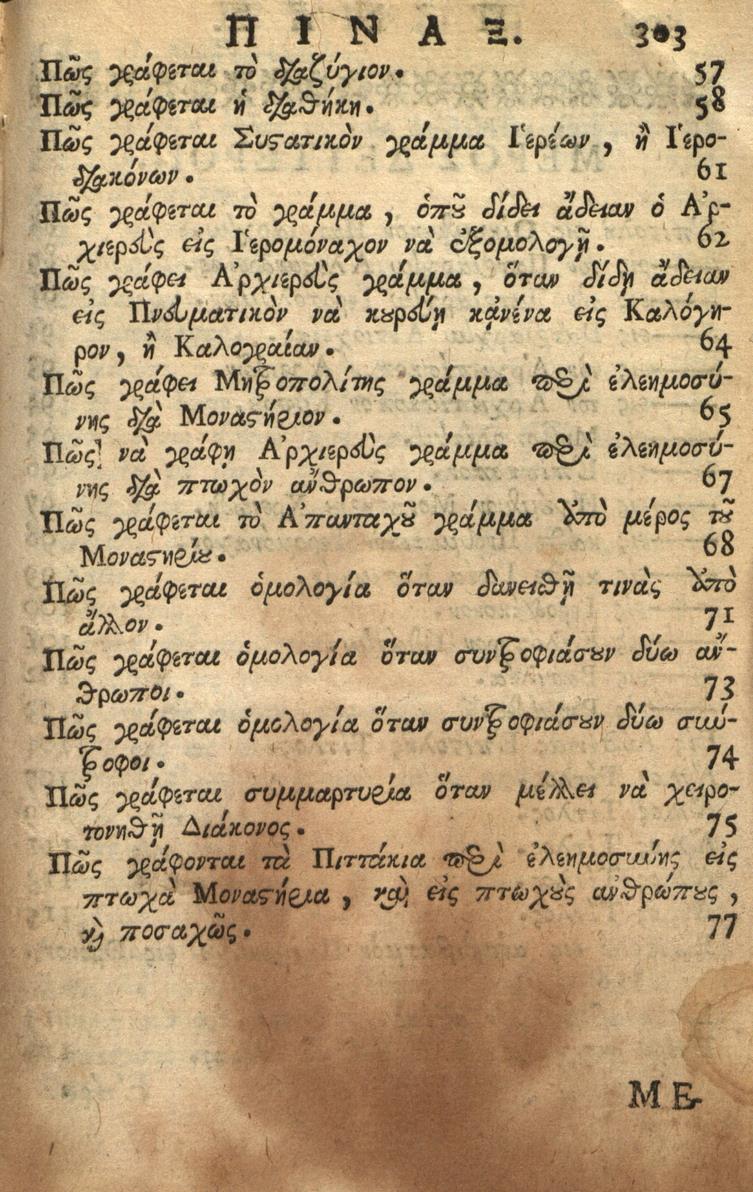 ΠΙΝΑΞ. 303
Πῶς γράφεται τὸ διαζύγιον. 57
Πῶς γράφεται ἡ διαθήκη. 58
Πῶς γράφεται Συςατικὸν γράμμα Ἱερέων, ἢ Ἱερο-
διακόνων. 61
Πῶς γράφεται τὸ γράμμα, ὁπȣ͂ δίδει ἄδειαν ὁ Ἀρ-
χιερεὺς εἰς Ἱερομόναχον νὰ ἐξομολογῇ. 62
Πῶς γράφει Ἀρχιερεὺς γράμμα, ὅταν δίδῃ ἄδειαν
εἰς Πνευματικὸν νὰ κȣρεύῃ κᾀνένα εἰς Καλόγη-
ρον, ἢ Καλογραίαν. 64
Πῶς γράφει Μητροπολίτης γράμμα περὶ ἐλεημοσύ-
νης διὰ Μοναςήριον. 65
Πῶς νὰ γράφῃ Ἀρχιερεὺς γράμμα περὶ ἐλεημοσύ-
νης διὰ πτωχὸν ἄνθρωπον. 67
Πῶς γράφεται τὸ Ἀπανταχȣ͂ γράμμα ὑπὸ μέρος τȣ͂
Μοναςηρίȣ. 68
Πῶς γράφεται ὁμολογία ὅταν δανειθῇ τινὰς ὑπὸ
ἄλλον. 71
Πῶς γράφεται ὁμολογία ὅταν συντροφιάσȣν δύω ἄν-
θρωποι. 73
Πῶς γράφεται ὁμολογία ὅταν συντροφιάσȣν δύω σύν-
τροφοι. 74
Πῶς γράφεται συμμαρτυρία ὅταν μέλλει νὰ χειρο-
τονηθῇ Διάκονος. 75
Πῶς γράφονται τὰ Πιττάκια περὶ ἐλεημοσύνης εἰς
πτωχὰ Μοναςήρια, καὶ εἰς πτωχȣ̀ς ἀνθρώπȣς,
ϗ̀ ποσαχῶς. 77
ΜΕ-